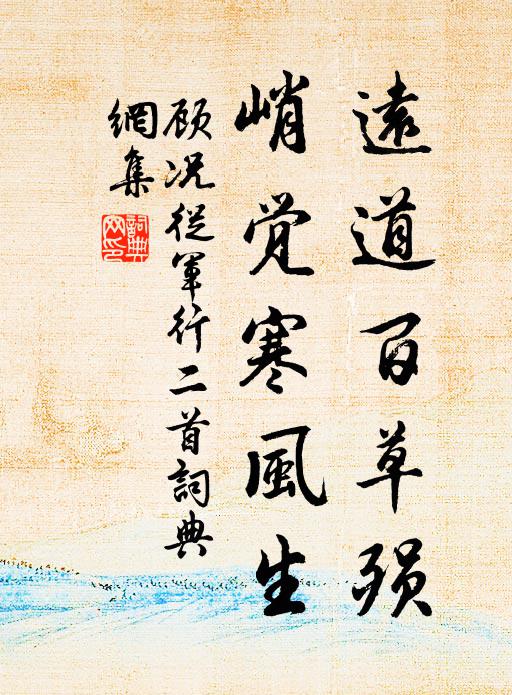 遠道百草殞
峭觉寒風生
顾况從軍行二首詞典
網集
詞典網印